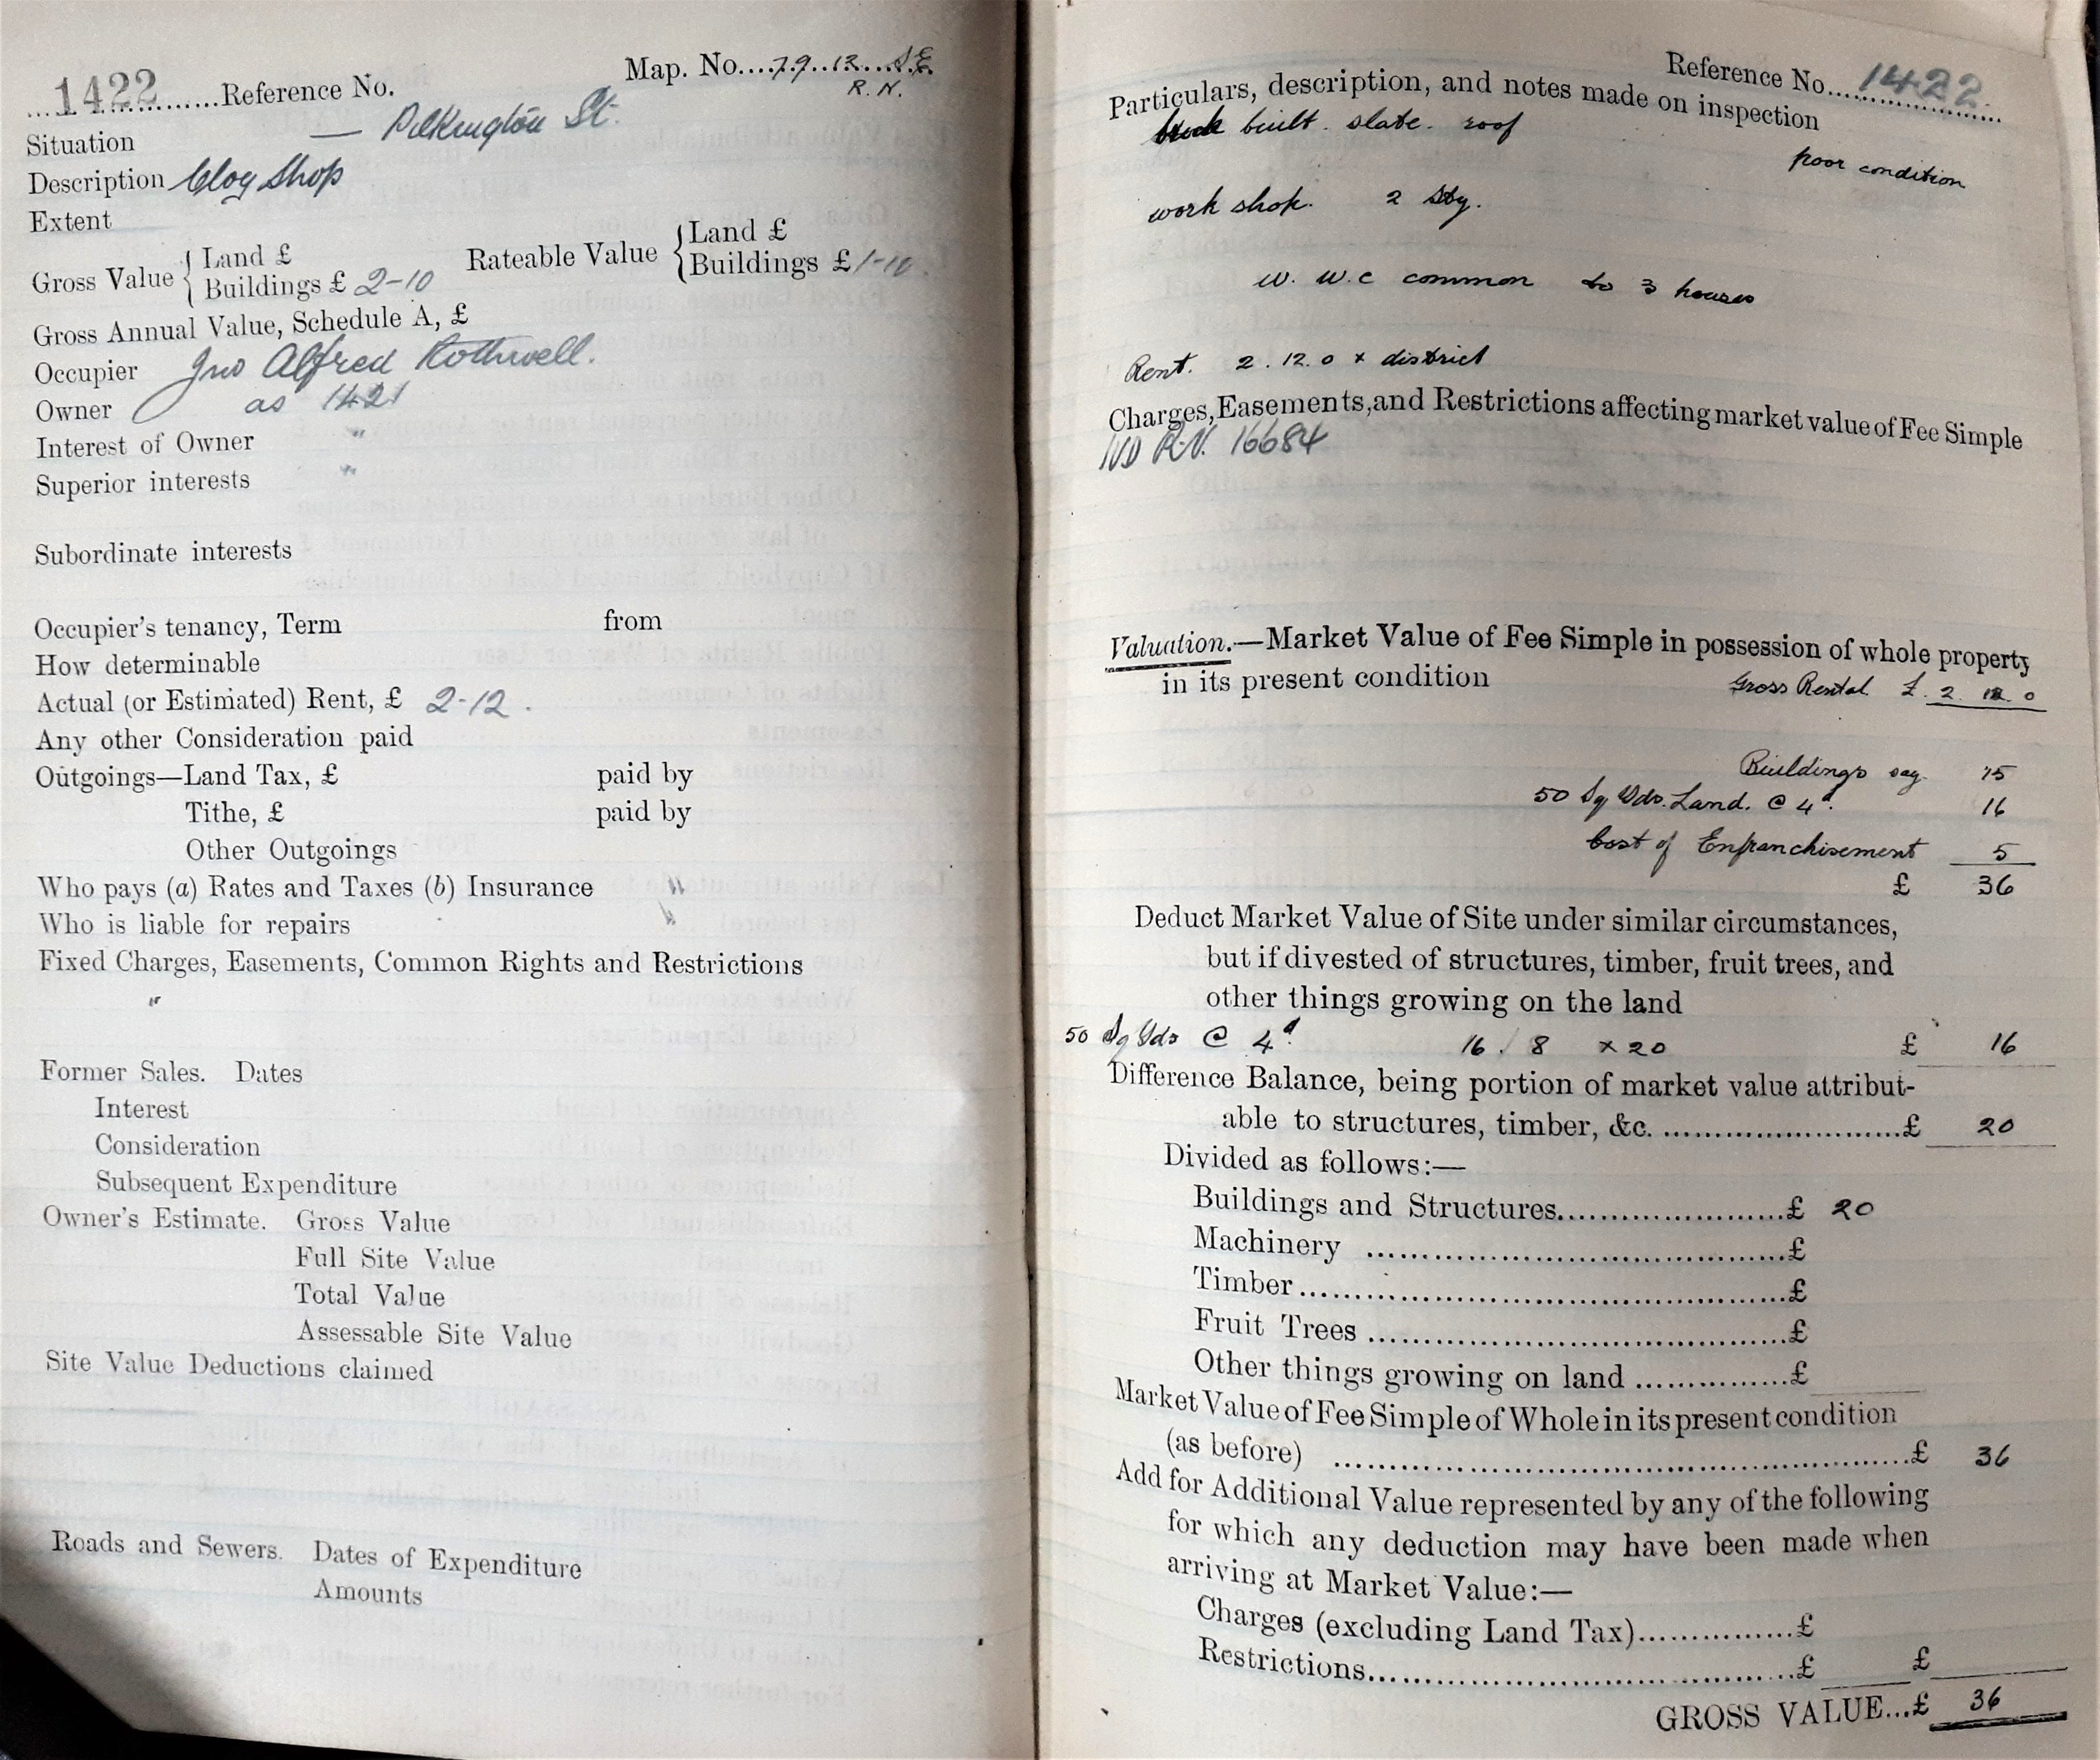 1422 Reference No. Map. No. 79. 12. S.E
R. N.
Situation — Pilkington St.
Description Clog Shop
Extent
Gross Value { Land £
Buildings £ 2-10
Rateable Value { Land £
Buildings £ 1-10.
Gross Annual Value, Schedule A, £
Occupier Jno Alfred Rothwell.
Owner as 1421
Interest of Owner "
Superior interests "
Subordinate interests
Occupier's tenancy, Term from
How determinable
Actual (or Estimated) Rent, £ 2-12.
Any other Consideration paid
Outgoings—Land Tax, £ paid by
Tithe, £ paid by
Other Outgoings
Who pays (a) Rates and Taxes (b) Insurance "
Who is liable for repairs "
Fixed Charges, Easements, Common Rights and Restrictions
"
Former Sales. Dates
Interest
Consideration
Subsequent Expenditure
Owner's Estimate. Gross Value
Full Site Value
Total Value
Assessable Site Value
Site Value Deductions claimed
Roads and Sewers. Dates of Expenditure
Amounts
Reference No. 1422
Particulars, description, and notes made on inspection
built. slate. roof
poor condition
work shop. 2 Sty.
W. W.C common to 3 houses
Rent. 2. 12. 0 + district
Charges, Easements, and Restrictions affecting market value of Fee Simple
R.V. 16684
Valuation.—Market Value of Fee Simple in possession of whole property
in its present condition
Gross Rental £. 2. 12. 0
Buildings say. 15
50 Sq Yds. Land. @ 4d. 16
Cost of Enfranchisement 5
£ 36
Deduct Market Value of Site under similar circumstances,
but if divested of structures, timber, fruit trees, and
other things growing on the land
50 Sq Yds @ 4d. 16/8 x 20 £ 16
Difference Balance, being portion of market value attribut-
able to structures, timber, &c. £ 20
Divided as follows:—
Buildings and Structures £ 20
Machinery £
Timber £
Fruit Trees £
Other things growing on land £
Market Value of Fee Simple of Whole in its present condition
(as before) £ 36
Add for Additional Value represented by any of the following
for which any deduction may have been made when
arriving at Market Value:—
Charges (excluding Land Tax) £
Restrictions £ £
GROSS VALUE...£ 36